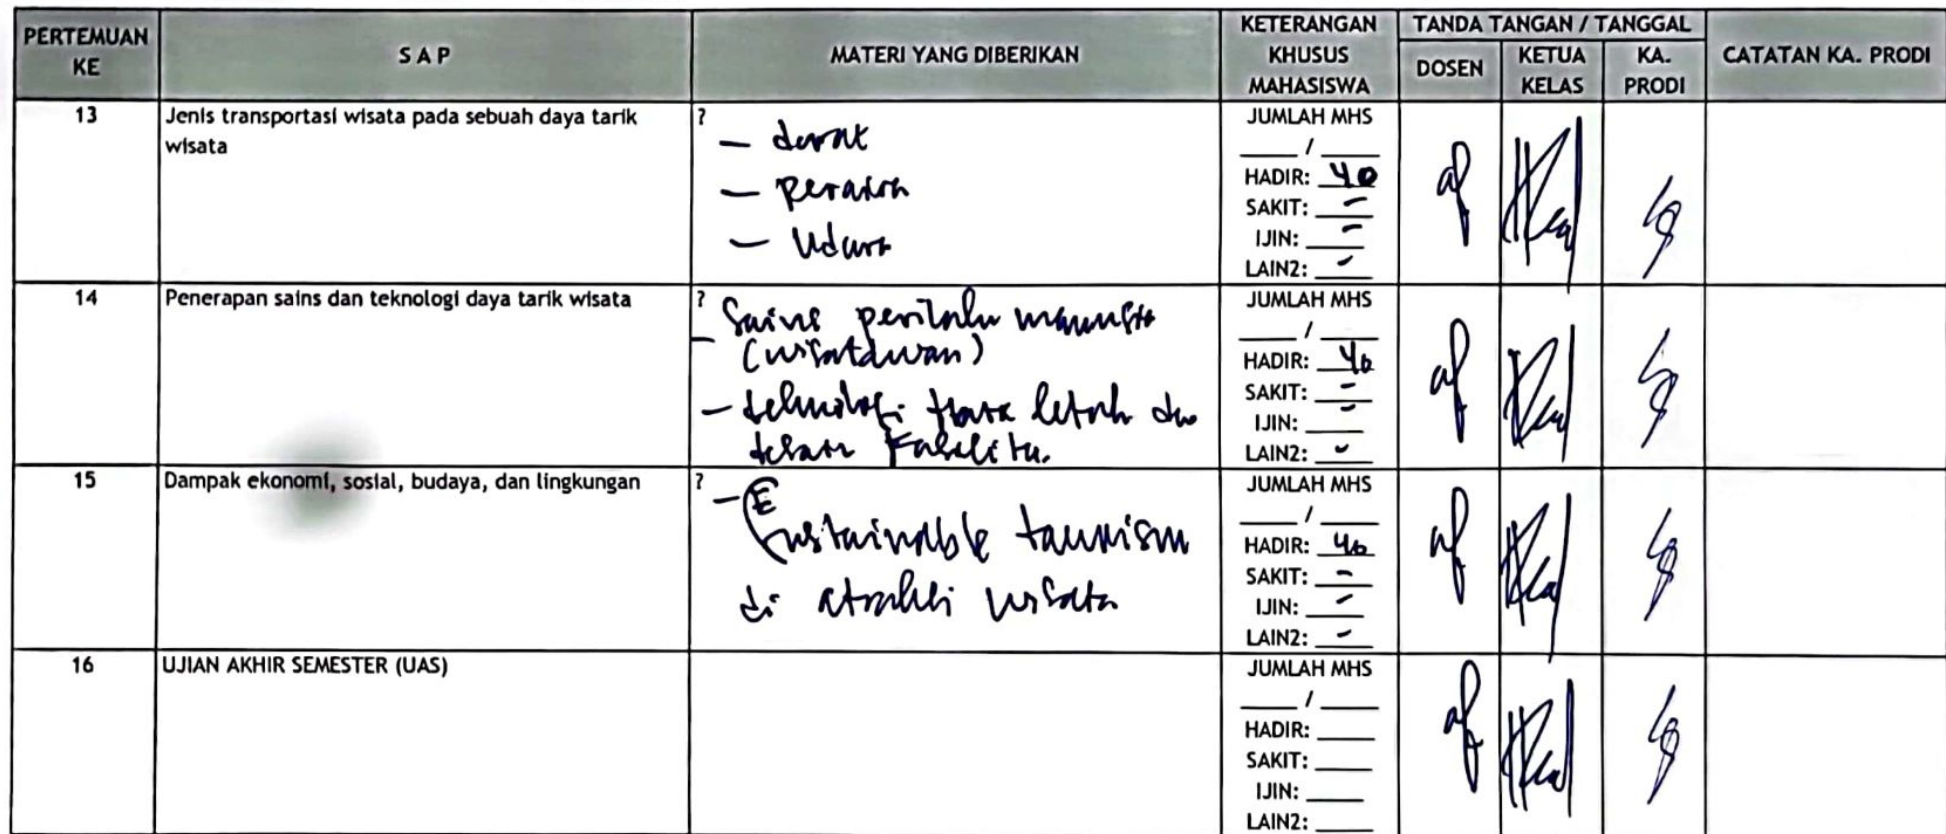 PERTEMUAN KE
S A P
MATERI YANG DIBERIKAN
KETERANGAN KHUSUS MAHASISWA
TANDA TANGAN / TANGGAL
DOSEN
KETUA KELAS
KA. PRODI
CATATAN KA. PRODI
13
Jenis transportasi wisata pada sebuah daya tarik
wisata
?
— darat
— perairan
— Udara
JUMLAH MHS
/
HADIR: 40
SAKIT: -
IJIN: -
LAIN2: -
14
Penerapan sains dan teknologi daya tarik wisata
?
- Sains perilaku manusia
(wisatawan)
- teknologi tata letak dan
desain Fasilitas.
JUMLAH MHS
/
HADIR: 40
SAKIT: -
IJIN: -
LAIN2: -
15
Dampak ekonomi, sosial, budaya, dan lingkungan
?
- Sustainable tourism
di atraksi wisata
JUMLAH MHS
/
HADIR: 40
SAKIT: -
IJIN: -
LAIN2: -
16
UJIAN AKHIR SEMESTER (UAS)
JUMLAH MHS
/
HADIR:
SAKIT:
IJIN:
LAIN2: